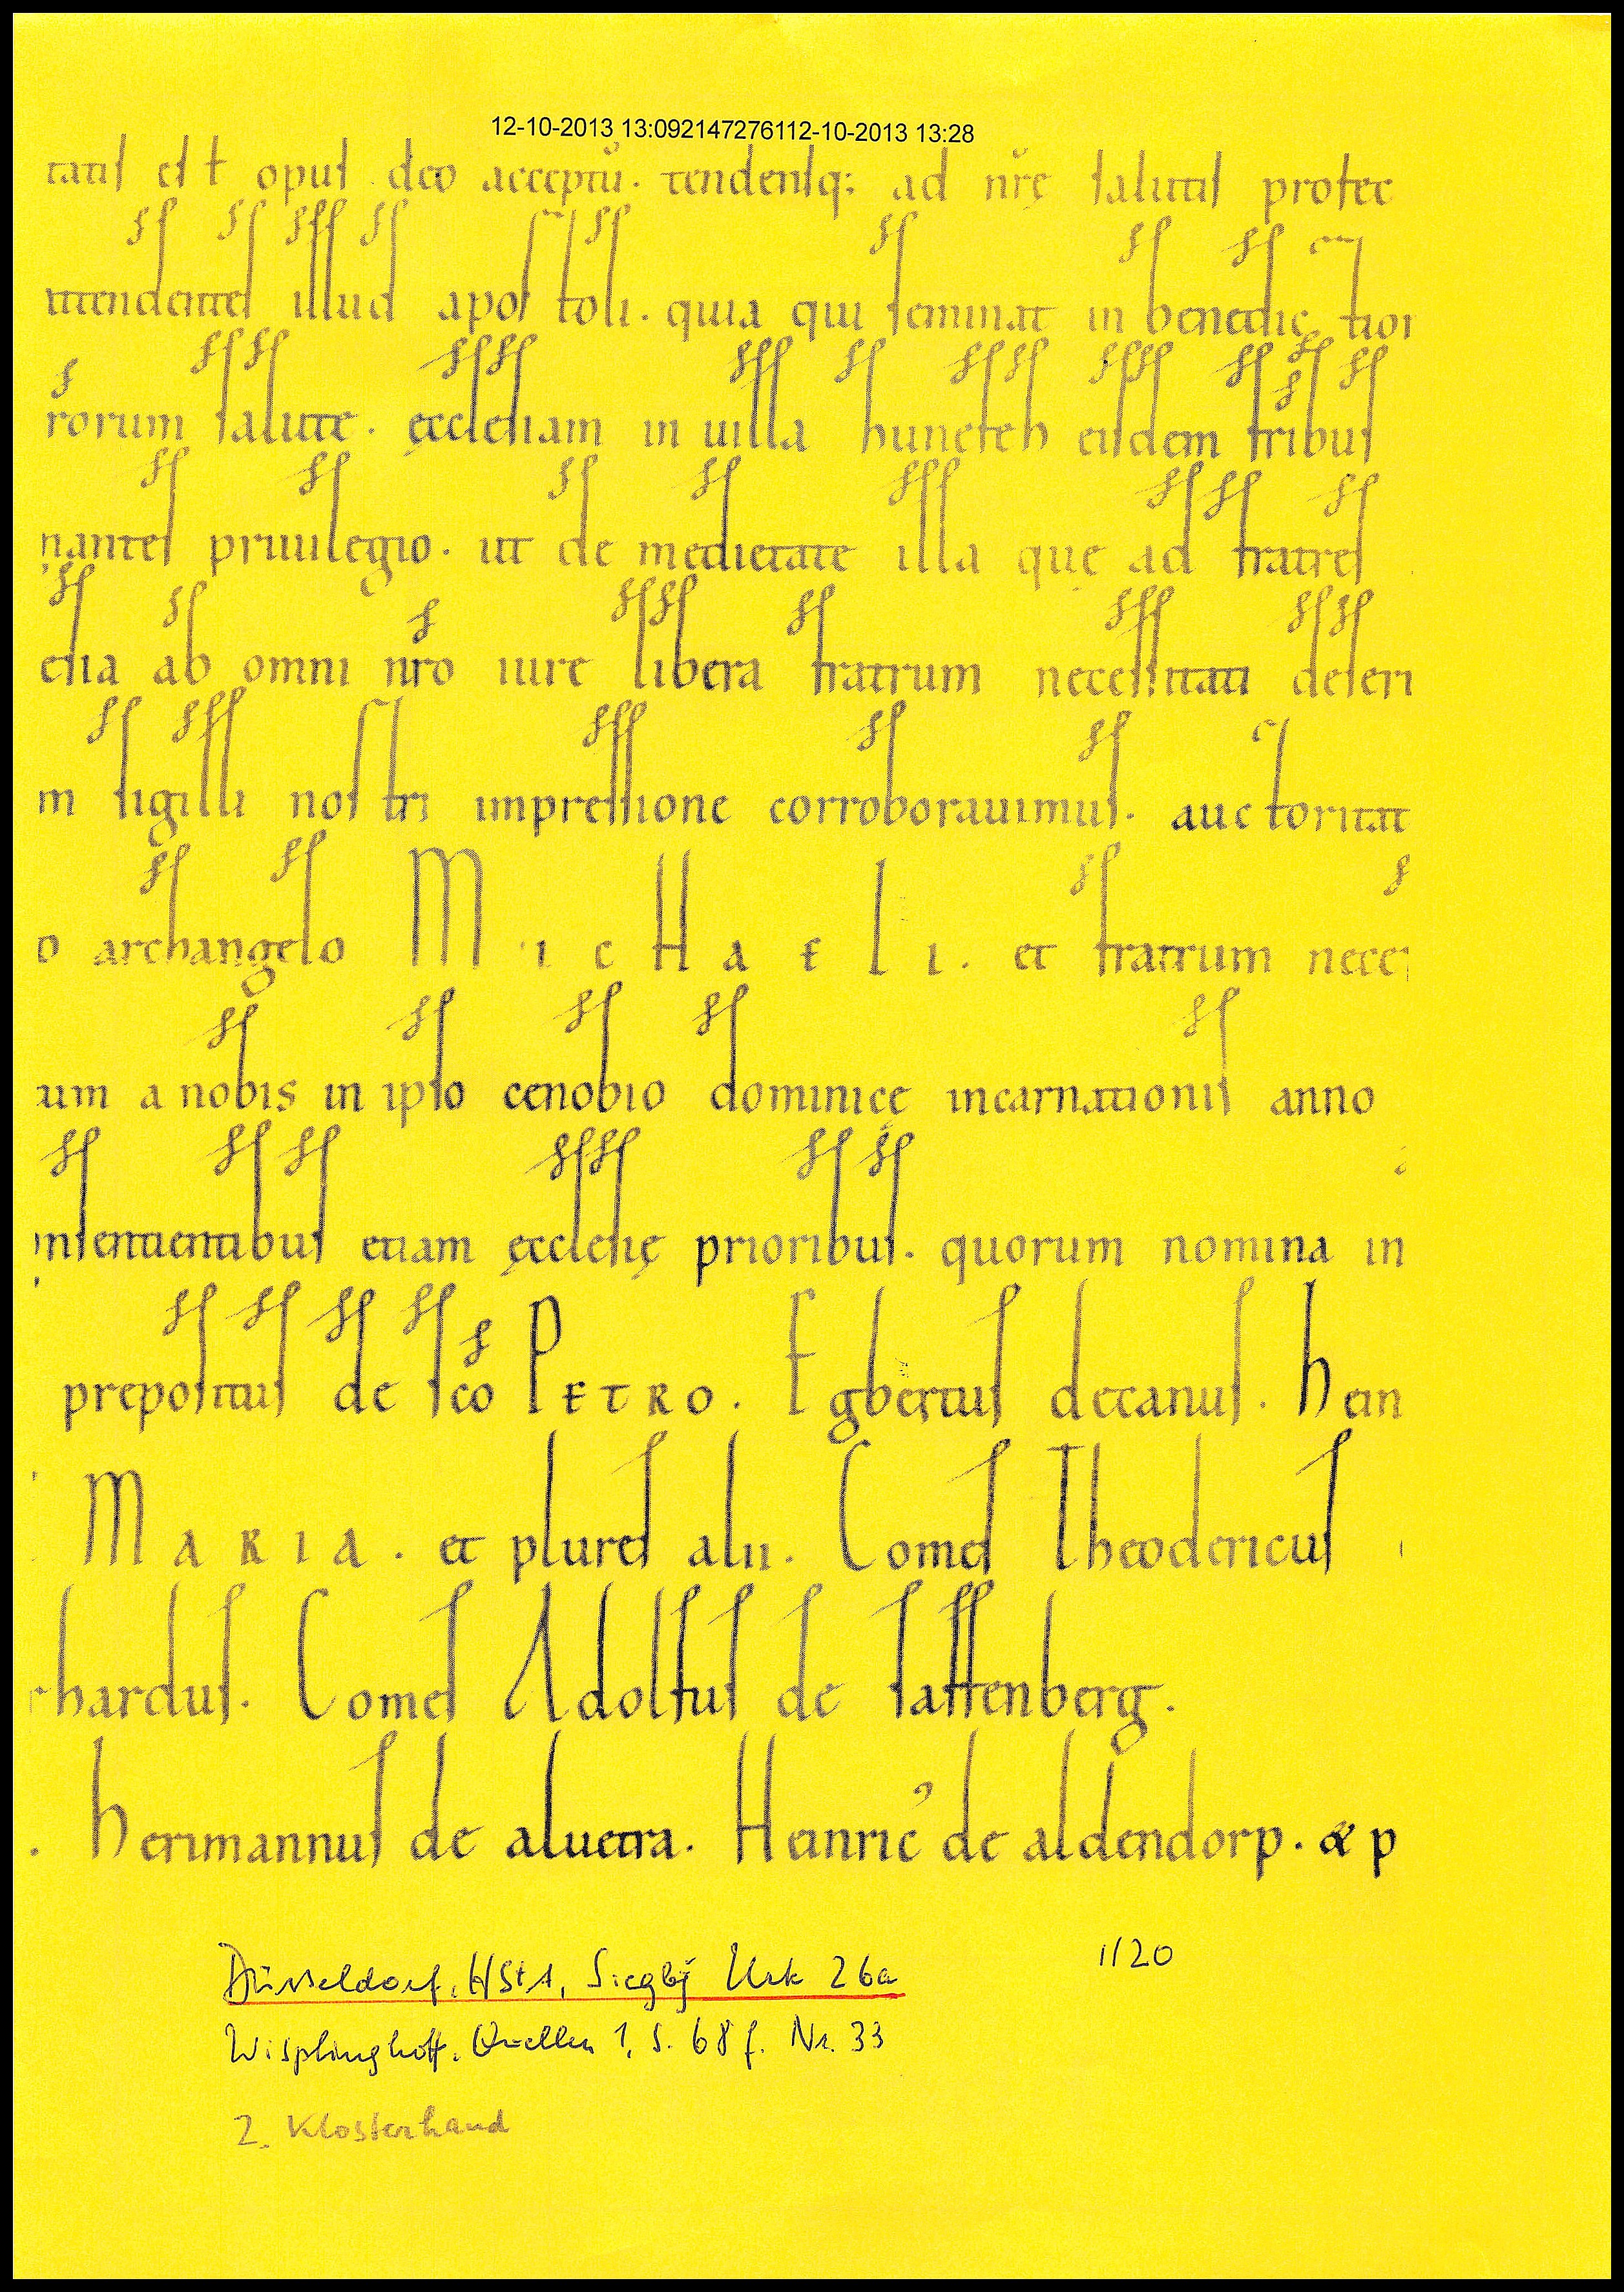 12-10-2013 13:092147276112-10-2013 13:28
tatis est opus deo acceptū. tendensq; ad nr̃ę salutis profec
ttendentes illud apostoli. quia qui seminat in benedictior
rorum salute. ęcclesiam in uilla hunefeh eisdem fribus
nantes priuilegio. ut de medietate illa quę ad fratres
esia ab omni nr̃o iure libera fratrum necessitati deseri
m sigilli nostri impressione corroborauimus. auctoritat
o archangelo MICHAELI. et fratrum neces
um a nobis in ipso cenobio dominicę incarnationis anno
nsentientibus etiam ęcclesię prioribus. quorum nomina in
prepositus de sc̃o PETRO. Egbertus decanus. hein
MARIA. et plures alii. Comes Theodericus
hardus. Comes Adolfus de saffenberg.
. herimannus de aluetra. Heinric' de aldendorp. & p
Düsseldorf, HStA, Siegbg Urk 26a
1120
Wisplinghoff, Quellen 1, S. 68 f. Nr. 33
2. Klosterhand